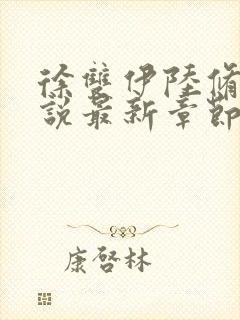 徐雙伊陸脩
說最新章節
康啓林